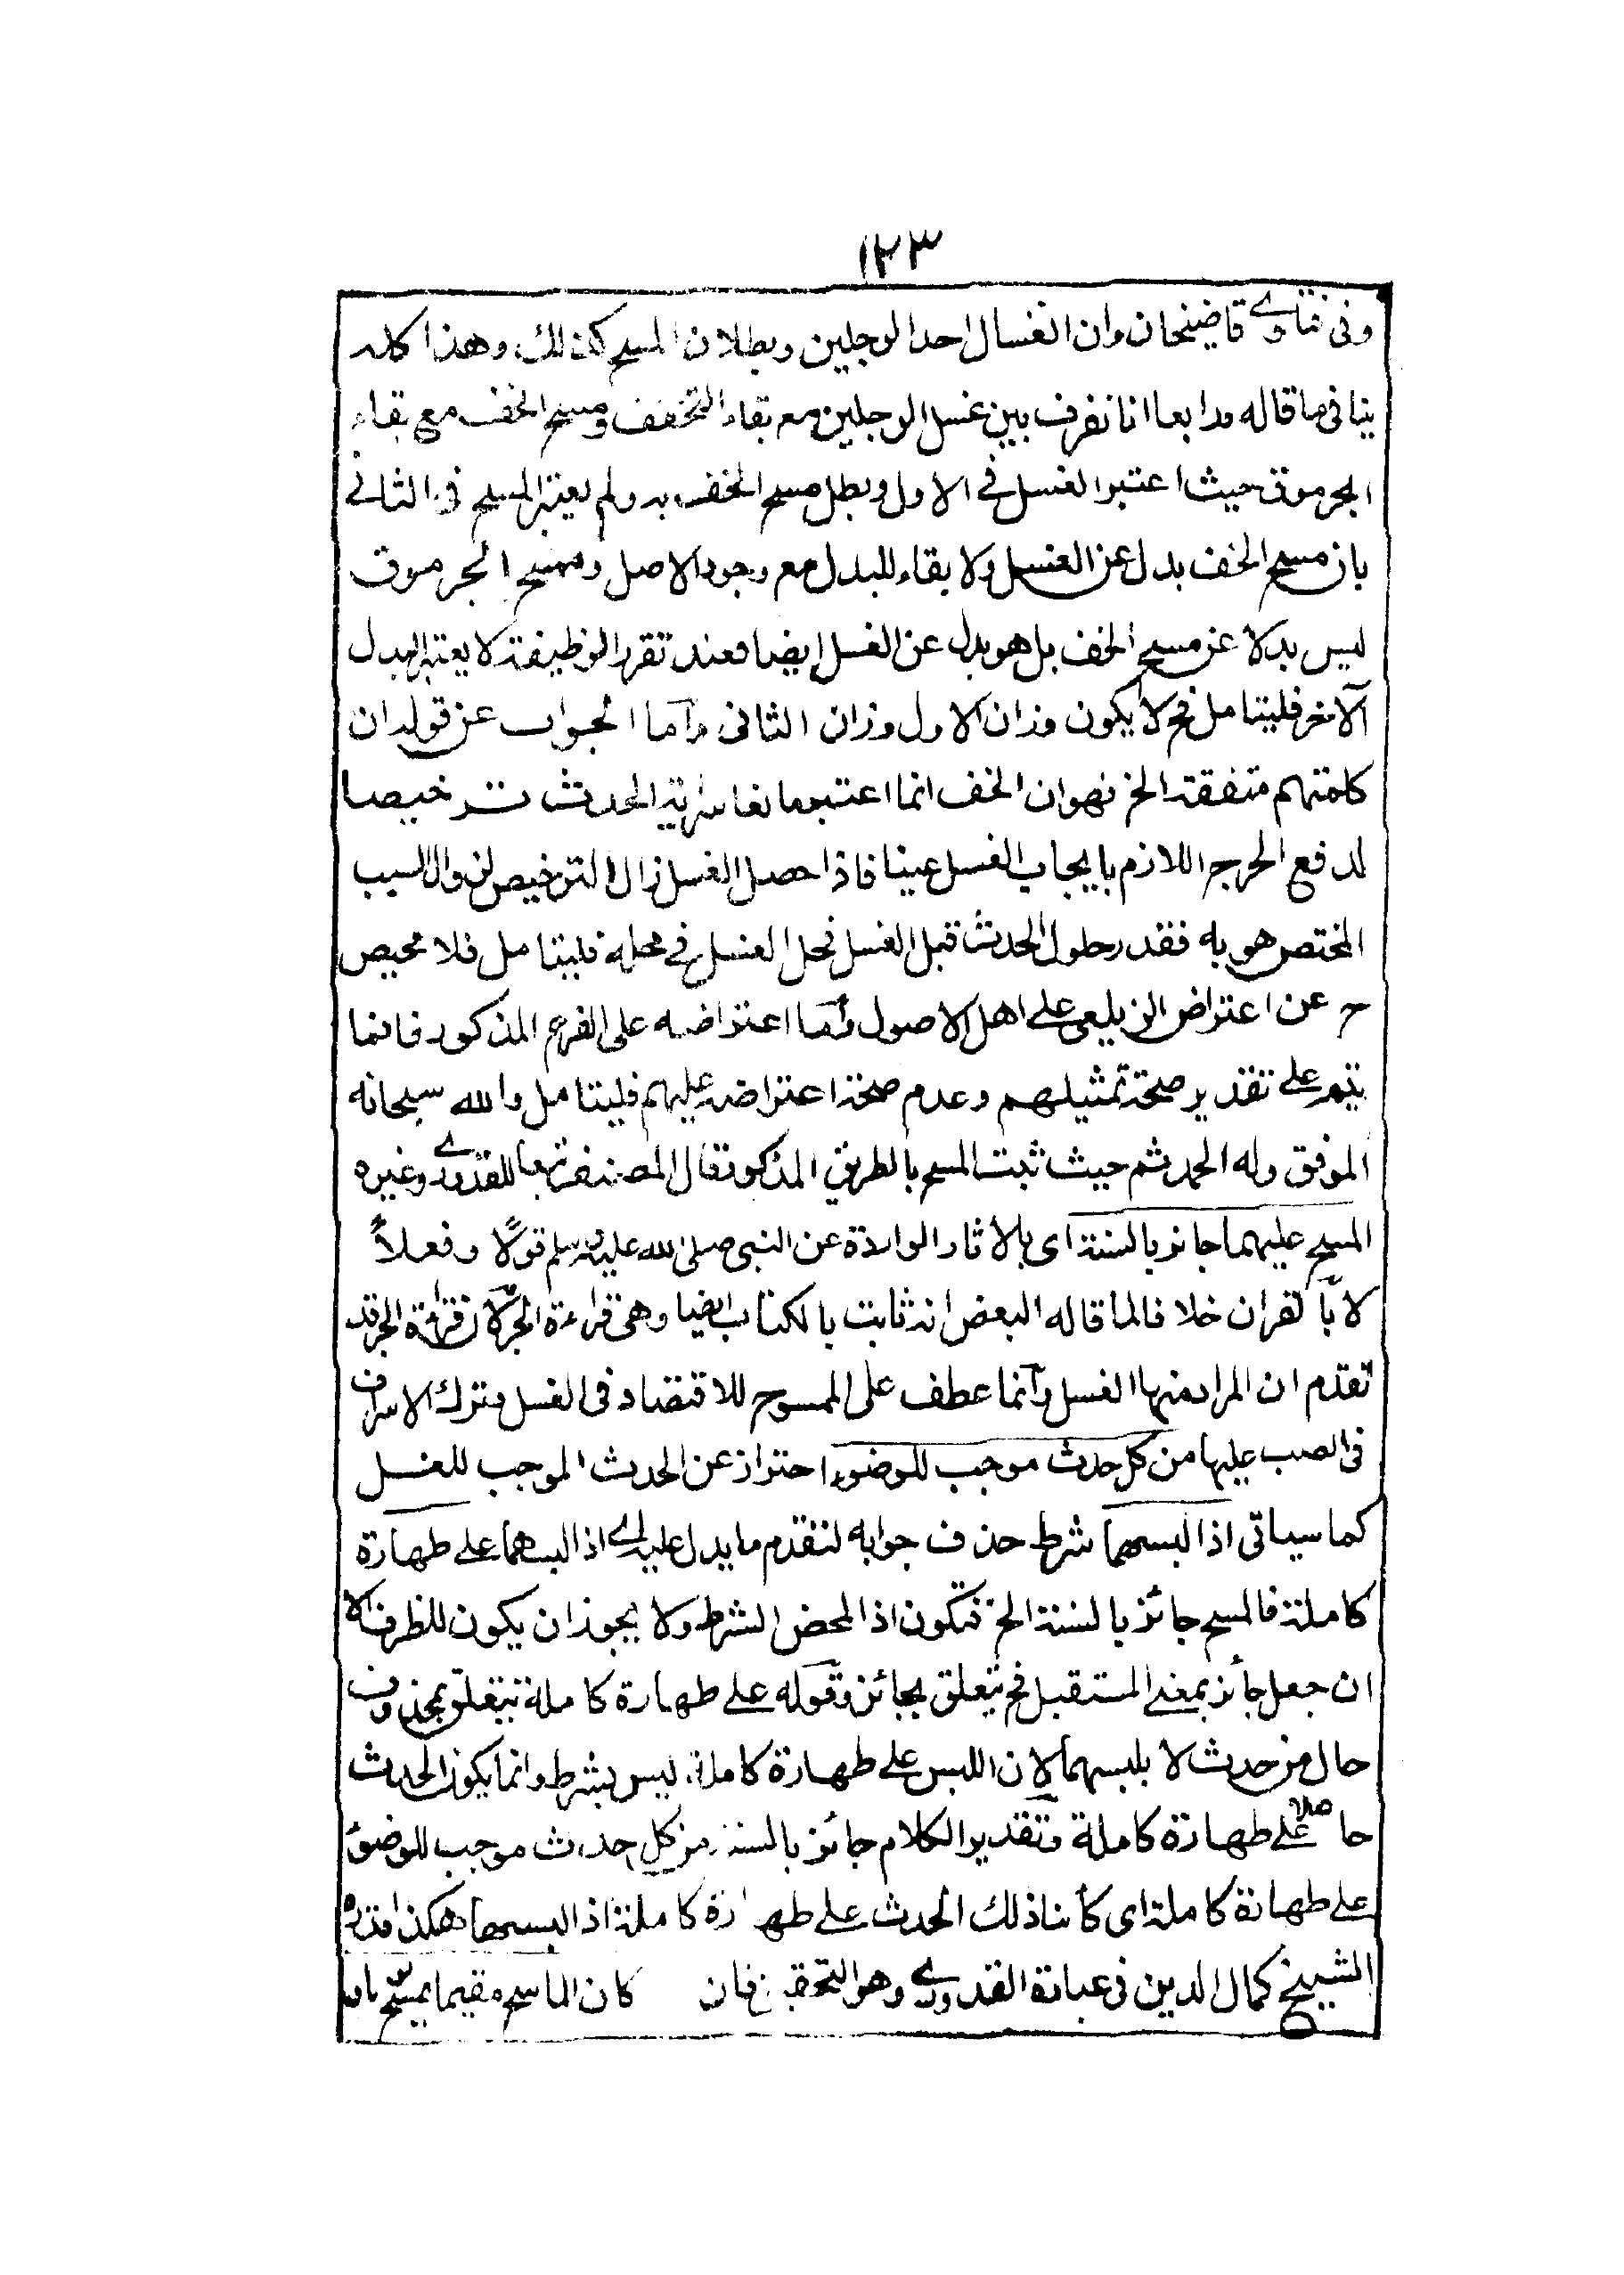 ١٢٣
وفى فتاوے قاضيخان وان انغسال احد الرجلين وبطلان المسح كذلك وهذا كله
ينافى ما قاله ورابعا انا نفرق بين غسل الرجلين مع بقاء التخفف ومسح الخف مع بقاء
الجرموق حيث اعتبر الغسل فى الاول وبطل مسح الخف به ولم يعتبر المسح فى الثانى
بان مسح الخف بدل عن الغسل ولا بقاء للبدل مع وجود الاصل ومسح الجرموق
ليس بدلا عن مسح الخف بل هو بدل عن الغسل ايضا فعند تقرر الوظيفة لا يعتبر البدل
الآخر فليتامل فح لا يكون وزان الاول وزان الثانى واما الجواب عن قوله ان
كلمتهم متفقة الخ فهو ان الخف انما اعتبر مانعا سراية الحدث ترخيصا
لدفع الحرج اللازم بايجاب الغسل عينا فاذا حصل الغسل زال الترخيص لزوال السبب
المختص هو به فقد رحلول الحدث قبل الغسل فحل الغسل فى محله فليتامل فلا محيص
ح عن اعتراض الزيلعى على اهل الاصول واما اعتراضه على الفرع المذكور فانما
يتم على تقدير صحة تمثيلهم وعدم صحة اعتراضه عليهم فليتامل والله سبحانه
الموفق وله الحمد ثم حيث ثبت المسح بالطريق المذكو فقال المصنف تبعا للقدورے وغيره
المسح عليهما جائز بالسنة اى بالاثار الواردة عن النبى صلى الله عليه وسلم قولًا وفعلاً
لا بالقران خلافا لما قاله البعض انه ثابت بالكتاب ايضا وهى قراءة الجر لان قراءة الجر قد
تقدم ان المراد منها الغسل وانما عطف على الممسوح للاقتصاد فى الغسل وترك الاسراف
فى الصب عليها من كل حدث موجب للوضوء احتراز عن الحدث الموجب للغسل
كما سياتى اذا لبسهما شرط حذف جوابه لتقدم ما يدل عليه اے اذا لبسهما على طهارة
كاملة فالمسح جائز بالسنة الخ فتكون اذا لمحض الشرط ولا يجوز ان يكون للظرف الا
ان جعل جائز بمعنى المستقبل فح يتعلق بجائز وقوله على طهارة كاملة يتعلق بمحذوف
حال من حدث لا بلبسهما لان اللبس على طهارة كاملة ليس بشرط وانما يكون الحدث
حاصلا على طهارة كاملة وتقدير الكلام جائز بالسنة من كل حدث موجب للوضوء
على طهارة كاملة اى كائنا ذلك الحدث على طهارة كاملة اذا لبسهما هكذا قدره
الشيخ كمال الدين فى عبارة القدورے وهو التحقيق فان كان الماسح مقيما يمسح